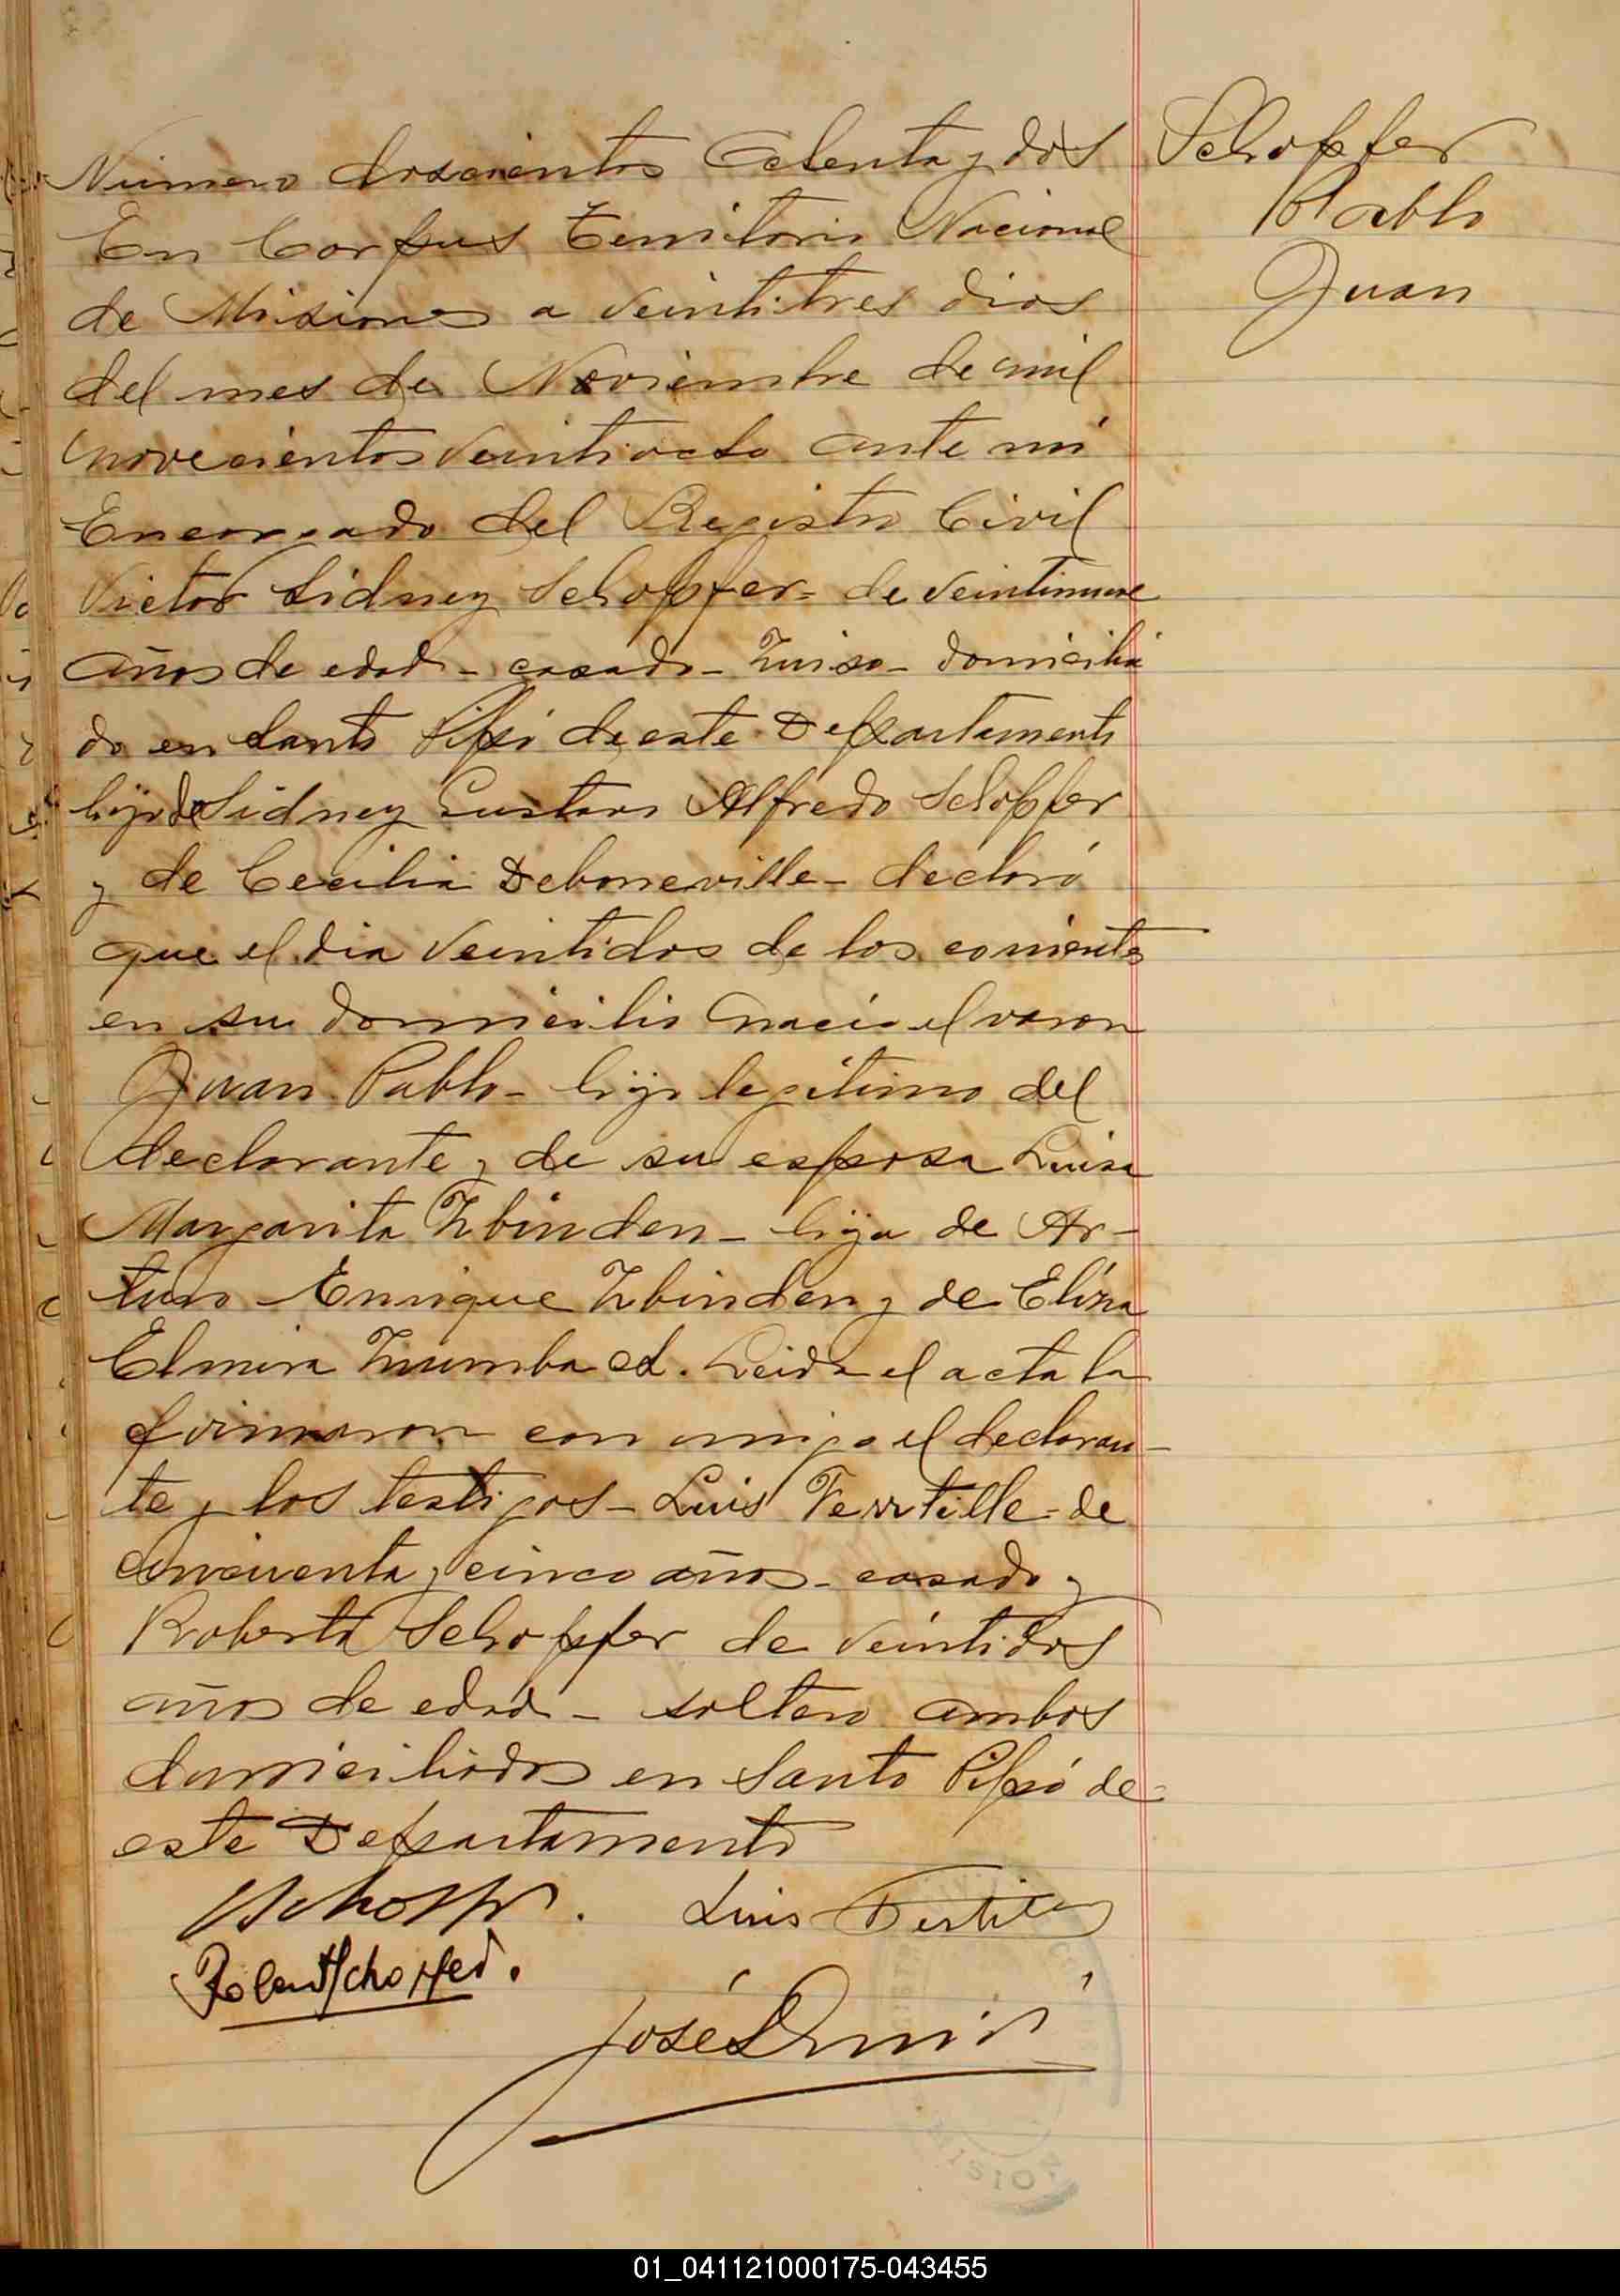 Número doscientos ochenta y dos
En Corpus Territorio Nacional
de Misiones a veintitres dias
del mes de Noviembre de mil
novecientos veintiocho ante mi
Encargado del Registro Civil
Victor Sidney Schopfer = de veintinueve
años de edad - casado - suiso - domicilia
do en Santo Pipó de este Departamento
hijo de Sidney Gustavo Alfredo Schopfer
y de Cecilia Deboneville - declaró
que el dia veintidos de los corrientes
en su domicilio nació el varon
Juan Pablo - hijo legítimo del
declarante y de su esposa Luisa
Margarita Zbinden - hija de Ar-
turo Enrique Zbinden y de Elisa
Elmira Leida el acta la
firmaron con migo el declaran-
te y los testigos - Luis - de
cincuenta y cinco años - casado y
Roberto Schopfer de veintidos
años de edad - soltero ambos
domiciliados en Santo Pipó de
este Departamento
Luis
Schopfer
Pablo
Juan
01_041121000175-043455